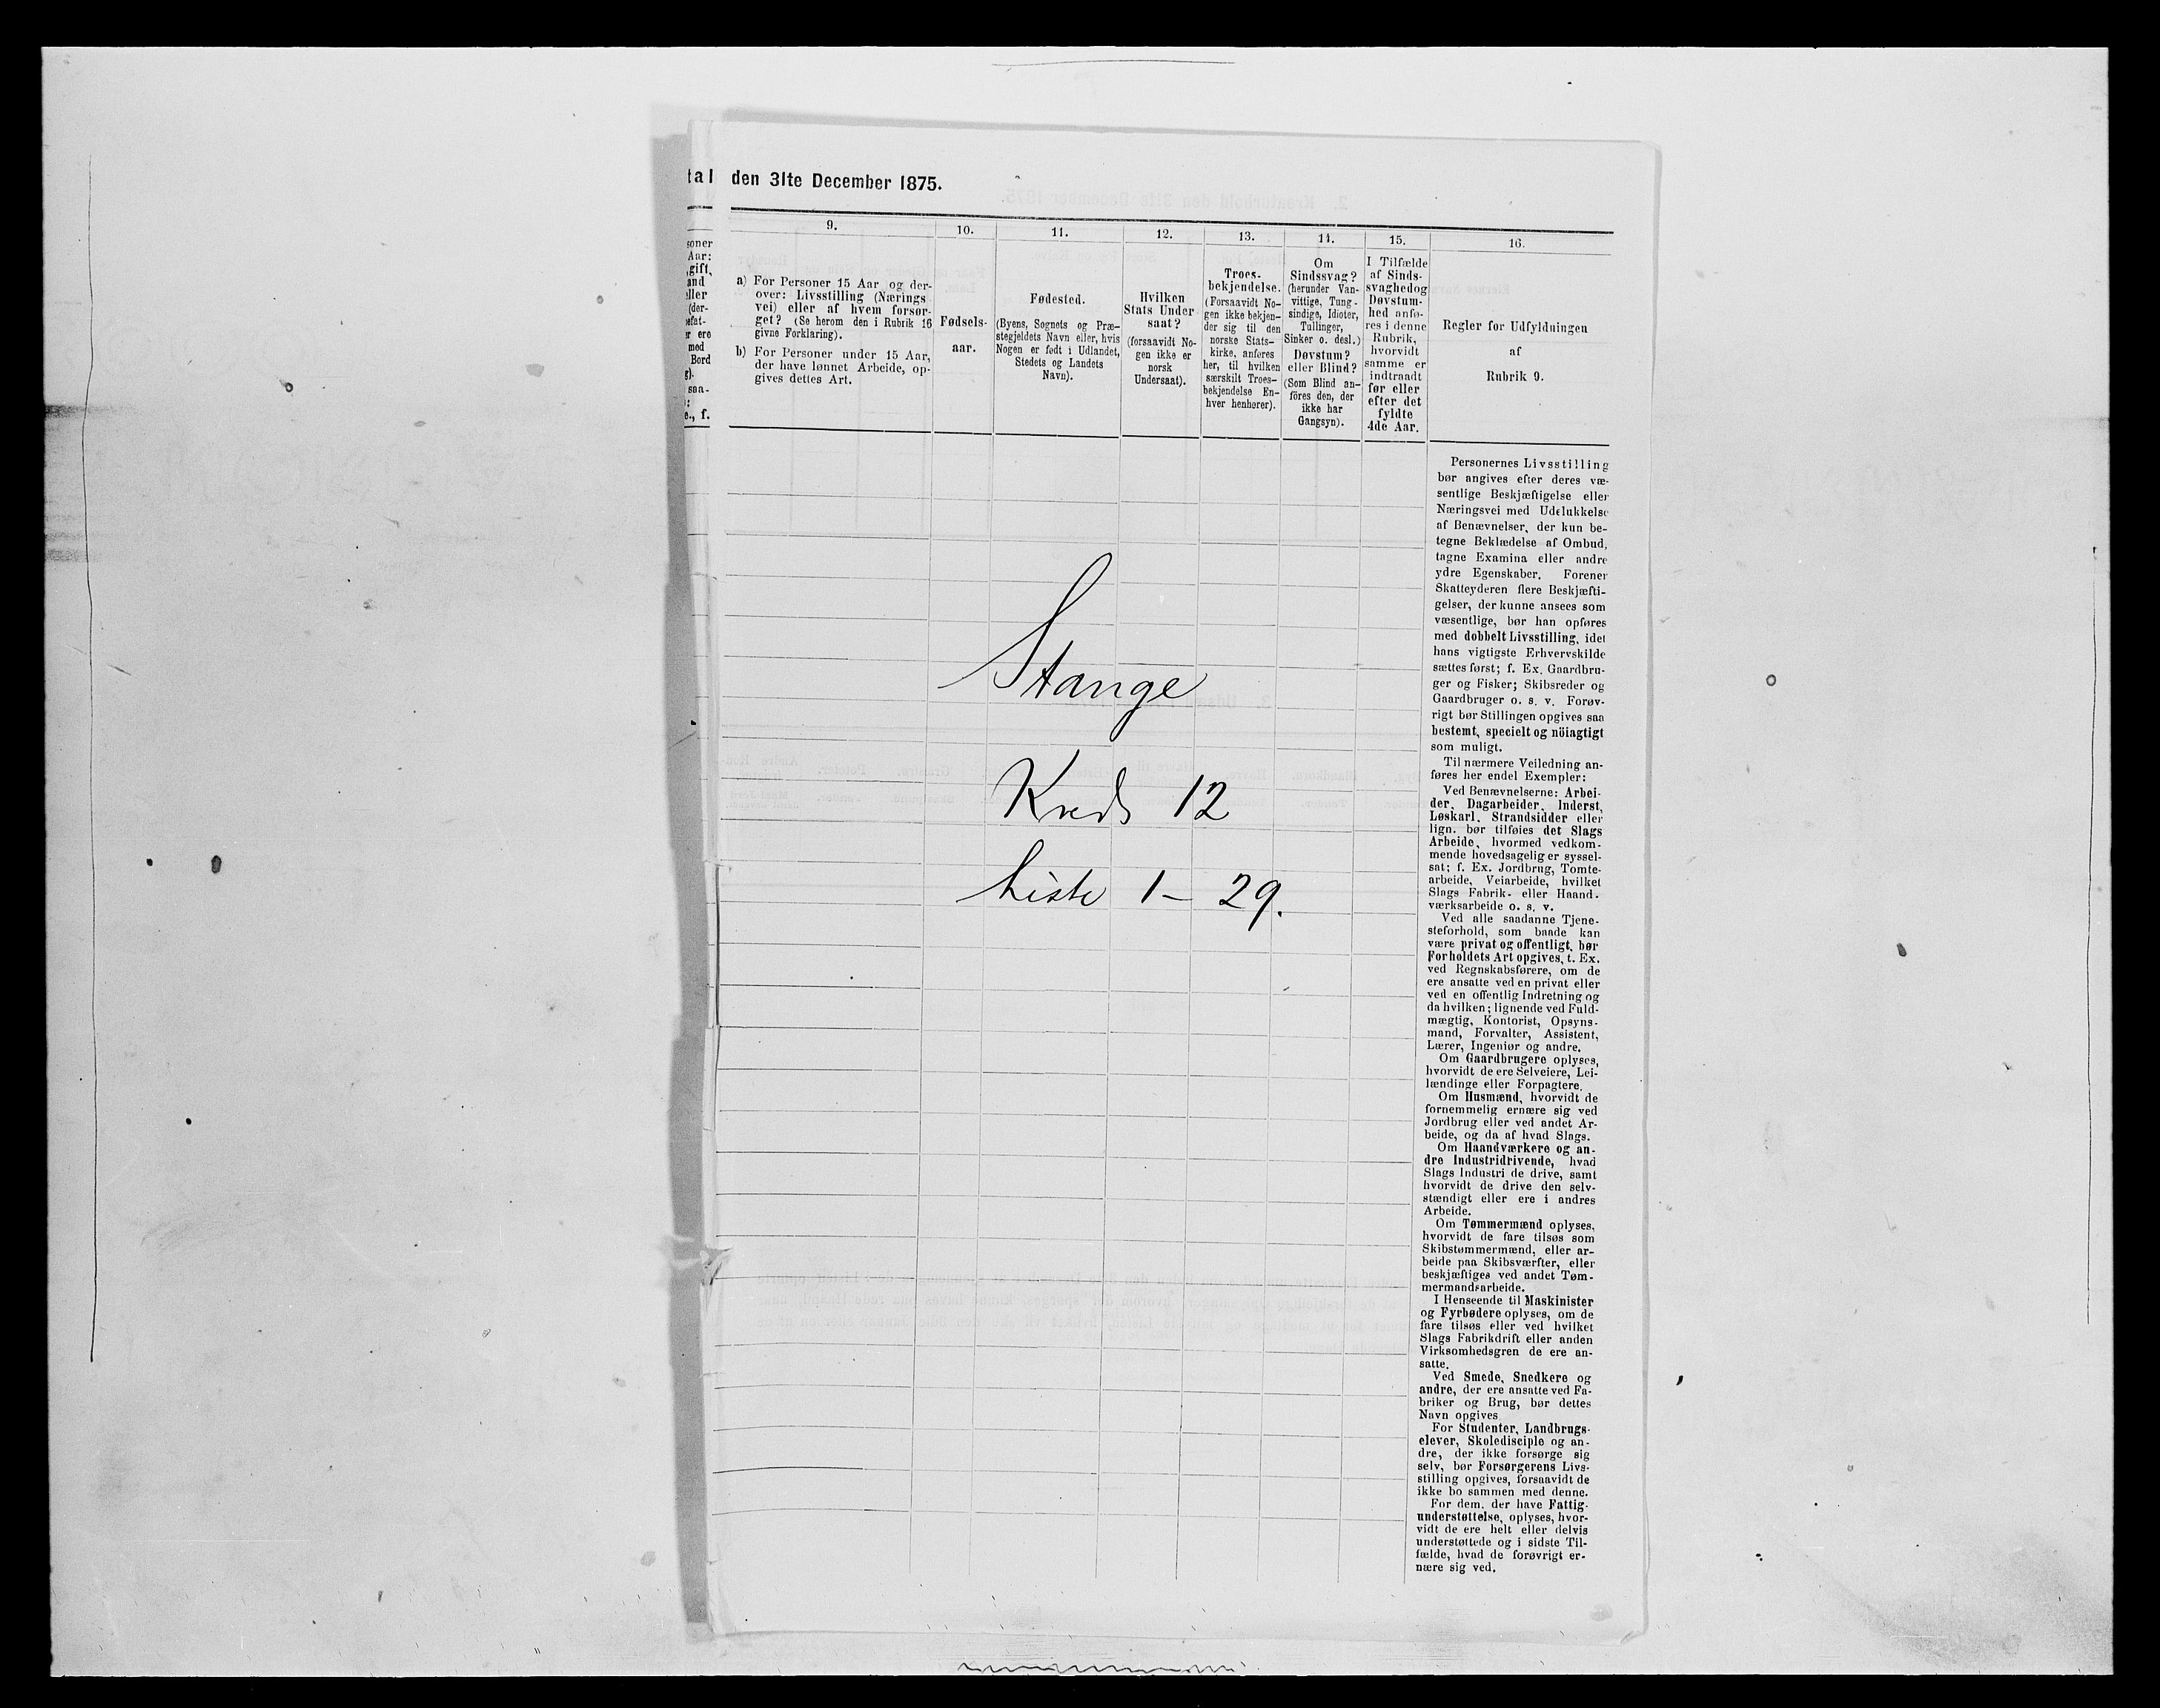 tal den 31te December 1875.
soner
Aar:
gift,
and
eller
(der-
efat-
er ere
med
Bord
saa-
e., f.
9.
a) For Personer 15 Aar og der-
over: Livsstilling (Nærings
vei) eller af hvem forsør-
get? (Se herom den i Rubrik 16
givne Forklaring).
b) For Personer under 15 Aar,
der have lønnet Arbeide, op-
gives dettes Art.
10.
Fødsels-
aar.
11.
Fødested.
(Byens, Sognets og Præ-
stegjeldets Navn eller, hvis
Nogen er født i Udlandet,
Stedets og Landets
Navn).
12.
Hvilken
Stats Under
saat?
(forsaavidt No-
gen ikke er
norsk
Undersaat).
13.
Troes-
bekjendelse.
(Forsaavidt No-
gen ikke bekjen-
der sig til den
norske Stats-
kirke, anføres
her, til hvilken
særskilt Troes-
bekjendelse En-
hver henhører).
14.
Om
Sindssvag?
(herunder Van-
vittige, Tung-
sindige, Idioter,
Tullinger,
Sinker o. desl.)
Døvstum?
eller Blind?
(Som Blind an-
föres den, der
ikke har
Gangsyn).
15.
I Tilfælde
af Sinds-
svaghedog
Døvstum-
hed anfø-
res i denne
Rubrik,
hvorvidt
samme er
indtraadt
før eller
efter det
fyldte
4de Aar.
16.
Regler for Udfyldningen
af
Rubrik 9.
Stange
Kreds 12
Liste 1 - 29.
Personernes Livsstilling
bør angives efter deres væ-
sentlige Beskjæftigelse eller
Næringsvei med Udelukkelse
af Benævnelser, der kun be-
tegne Beklædelse af Ombud,
tagne Examina eller andre
ydre Egenskaber. Forener
Skatteyderen flere Beskjæfti-
gelser, der kunne ansees som
væsentlige, bør han opføres
med dobbelt Livsstilling, idet
hans vigtigste Erhvervskilde
sættes først; f. Ex. Gaardbru-
ger og Fisker; Skibsreder og
Gaardbruger o. s. v. Forøv-
rigt bør Stillingen opgives saa
bestemt, specielt og nöiagtigt
som muligt.
Til nærmere Veiledning an-
føres her endel Exempler:
Ved Benævnelserne: Arbei-
der, Dagarbeider, Inderst,
Løskarl, Strandsidder eller
lign. bør tilføies det Slags
Arbeide, hvormed vedkom-
mende hovedsagelig er syssel-
sat; f. Ex. Jordbrug, Tomte-
arbeide, Veiarbeide, hvilket
Slags Fabrik- eller Haand-
værksarbeide o. s. v.
Ved alle saadanne Tjene-
steforhold, som baade kan
være privat og offentligt, bør
Forholdets Art opgives, t. Ex.
ved Regnskabsførere, om de
ere ansatte ved en privat eller
ved en offentlig Indretning og
da hvilken; lignende ved Fuld-
mægtig, Kontorist, Opsyns-
mand, Forvalter, Assistent,
Lærer, Ingeniør og andre.
Om Gaardbrugere oplyses,
hvorvidt de ere Selveiere, Lei-
lændinge eller Forpagtere.
Om Husmænd, hvorvidt de
fornemmelig ernære sig ved
Jordbrug eller ved andet Ar-
beide, og da af hvad Slags.
Om Haandværkere og an-
dre Industridrivende, hvad
Slags Industri de drive, samt
hvorvidt de drive den selv-
stændigt eller ere i andres
Arbeide.
Om Tømmermænd oplyses,
hvorvidt de fare tilsøs som
Skibstømmermænd, eller ar-
beide paa Skibsværfter, eller
beskjæftiges ved andet Tøm-
mermandsarbeide.
I Henseende til Maskinister
og Fyrbødere oplyses, om de
fare tilsøs eller ved hvilket
Slags Fabrikdrift eller anden
Virksomhedsgren de ere an-
satte.
Ved Smede, Snedkere og
andre, der ere ansatte ved Fa-
briker og Brug, bør dettes
Navn opgives.
For Studenter, Landbrugs-
elever, Skoledisciple og an-
dre, der ikke forsørge sig
selv, bør Forsørgerens Livs-
stilling opgives, forsaavidt de
ikke bo sammen med denne.
For dem, der have Fattig-
understøttelse, oplyses, hvor-
vidt de ere helt eller delvis
understøttede og i sidste Til-
fælde, hvad de forøvrigt er-
nære sig ved.